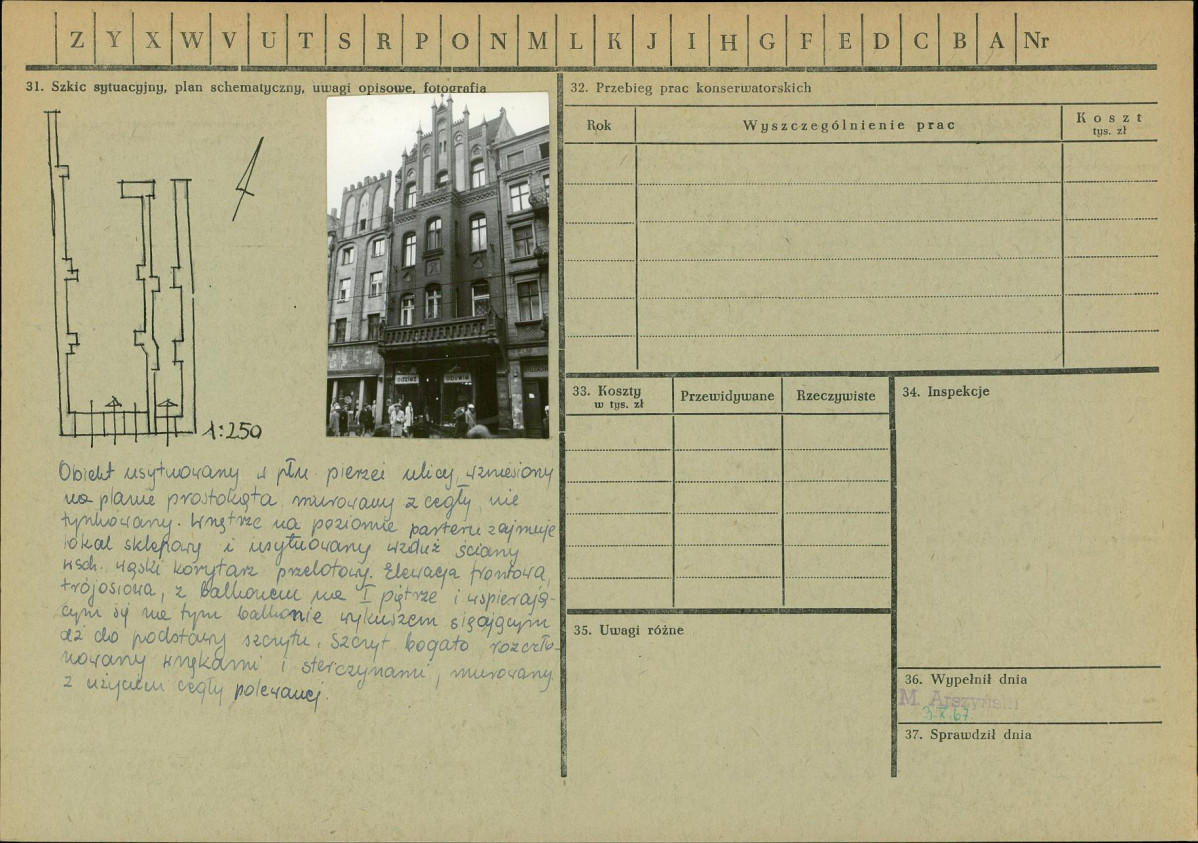 Z Y X W V U T S R P O N M L K J I H G F E D C B A Nr
31. Szkic sytuacyjny, plan schematyczny, uwagi opisowe, fotografia
1:250
Obiekt usytuowany w płn. pierzei ulicy, wzniesiony
na planie prostokąta, murowany z cegły, nie
tynkowany. Wnętrze na poziomie parteru zajmuje
lokal sklepowy i usytuowany wzdłuż ściany
wsch. wąski korytarz przelotowy. Elewacja frontowa,
trójosiowa, z balkonem na I piętrze i wspierają-
cym się na tym balkonie wykuszem sięgającym
aż do podstawy szczytu. Szczyt bogato rozczło-
nowany wnękami i sterczynami, murowany
z użyciem cegły polewanej.
32. Przebieg prac konserwatorskich
Rok Wyszczególnienie prac Koszt
tys. zł
33. Koszty
w tys. zł
Przewidywane Rzeczywiste
34. Inspekcje
35. Uwagi różne
36. Wypełnił dnia
M. Arszyński
3.X.67.
37. Sprawdził dnia